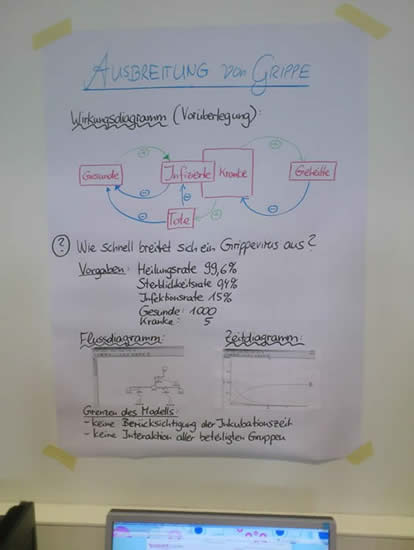 AUSBREITUNG von GRIPPE
Wirkungsdiagramm (Vorüberlegung):
Gesunde
Infizierte
Kranke
Geheilte
Tote
? Wie schnell breitet sich ein Grippevirus aus?
Vorgaben: Heilungsrate 99,6%
Sterblichkeitsrate 0,4%
Infektionsrate 15%
Gesunde: 1000
Kranke: 5
Flussdiagramm:
Zeitdiagramm:
Grenzen des Modells:
- keine Berücksichtigung der Inkubationszeit
- keine Interaktion aller beteiligten Gruppen